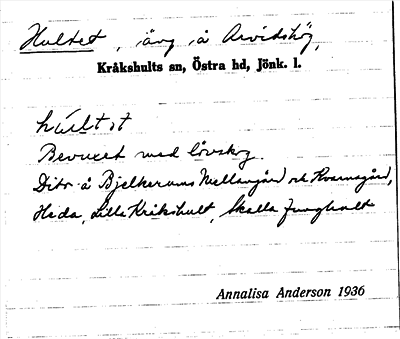 Hultet, äng å Arvidshög,
Kråkshults sn, Östra hd, Jönk. l.
hultət
Bevuxet med lövskog.
Dito å Bjelkerums Mellangård och Kvarnagård,
Heda, Lilla Kråkshult, Skalla Ljunghult
Annalisa Anderson 1936